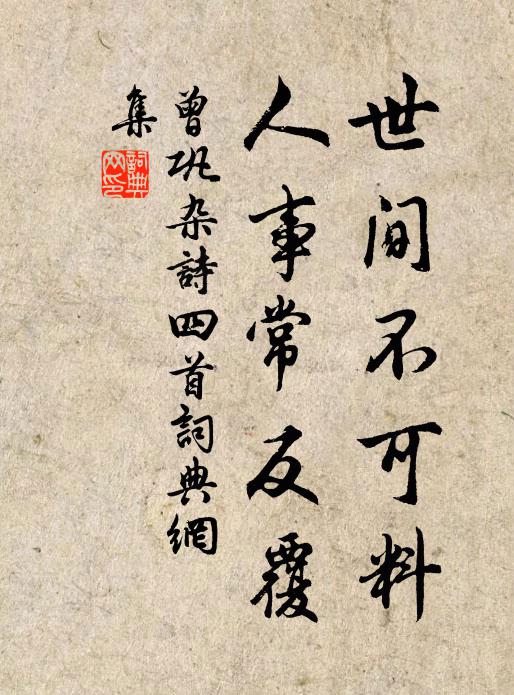 世間不可料
人事常反覆
曾巩杂詩四首詞典網
集
詞典
网印